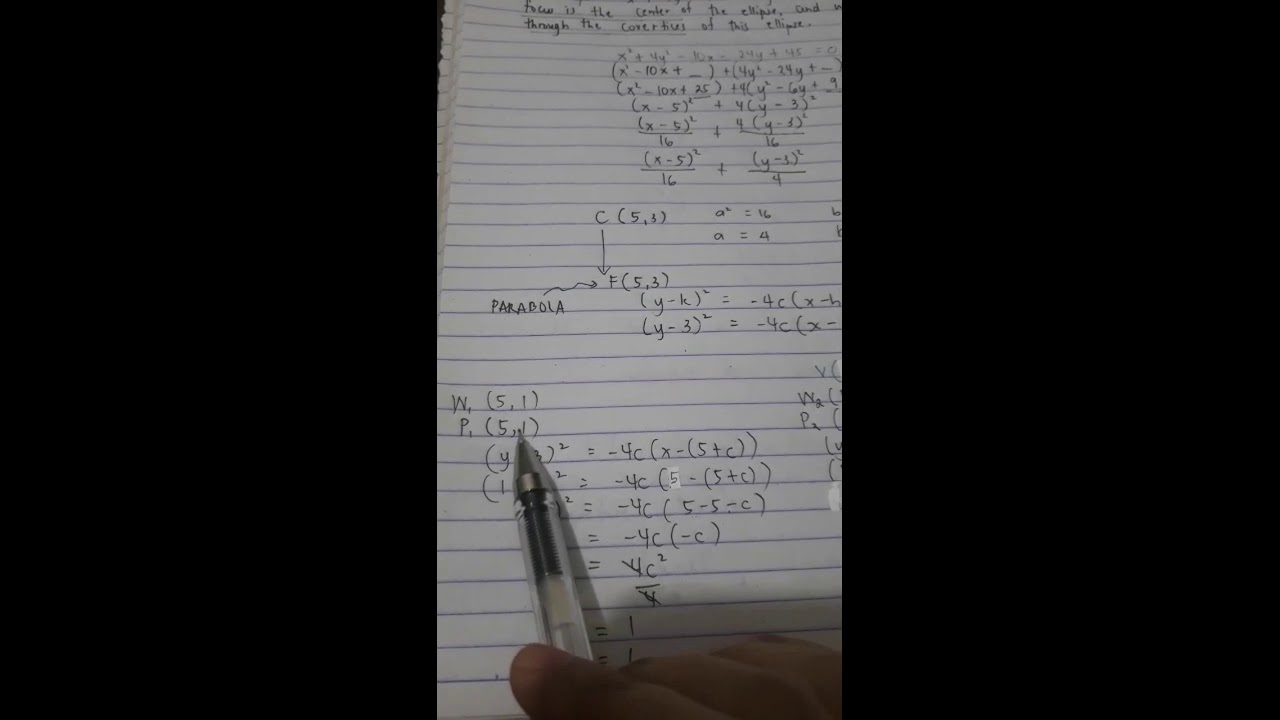 focus is the center of the ellipse, and
through the covertices of this ellipse.
x² + 4y² - 10x - 24y + 45 = 0
(x² - 10x + _ ) + (4y² - 24y + _
(x² - 10x + 25 ) + 4(y² - 6y + 9
(x - 5)² + 4(y - 3)²
(x - 5)²/16 + 4(y - 3)²/16
(x - 5)²/16 + (y - 3)²/4
C (5,3) a² = 16 b
a = 4
F(5,3)
PARABOLA (y - k)² = -4c(x - h
(y - 3)² = -4c(x -
V(
W₁ (5, 1) W₂(
P₁ (5, 1) P₂ (
(y 3)² = -4c(x - (5+c))
(1 ² = -4c(5 - (5+c))
)² = -4c( 5 - 5 - c)
= -4c(-c)
= 4c²/4
= 1
= 1